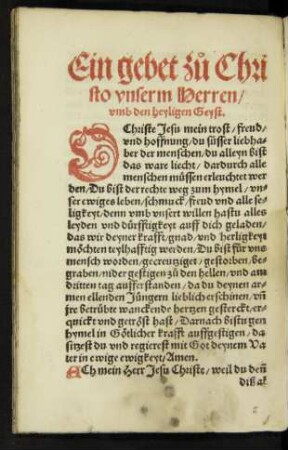 Ein gebet zů Chri
sto vnserm Herren/
vmb den heyligen Geyst.
O Christe Jesu mein trost/ freud/
vnd hoffnung/ du süsser liebha
ber der menschen/ du alleyn bist
das ware liecht/ dardurch alle
menschen müssen erleuchtet wer
den/ Du bist der rechte weg zum hymel/ vn-
ser ewiges leben/ schmuck/ freud vnd alle se-
ligkeyt/ denn vmb vnsert willen hastu alles
leyden vnd dürfftigkeyt auff dich geladen/
das wir deyner krafft/ gnad/ vnd herligkeyt
möchten teylhafftig werden/ Du bist für vns
mensch worden/ gecreutziget/ gestorben/ be-
graben/ nider gestigen zů den hellen/ vnd am
dritten tag aufferstanden/ da du deynen ar
men ellenden Jüngern lieblich erschinen/ vñ
jre betrübte wanckende hertzen gesterckt/ er-
quickt vnd getröst hast/ Darnach bistu gen
hymel in Götlicher krafft auffgestigen/ da
sitzest du vnd regierest mit Got deynem Va
ter in ewige ewigkeyt/ Amen.
ACh mein Herr Jesu Christe/ weil du deñ
diß al